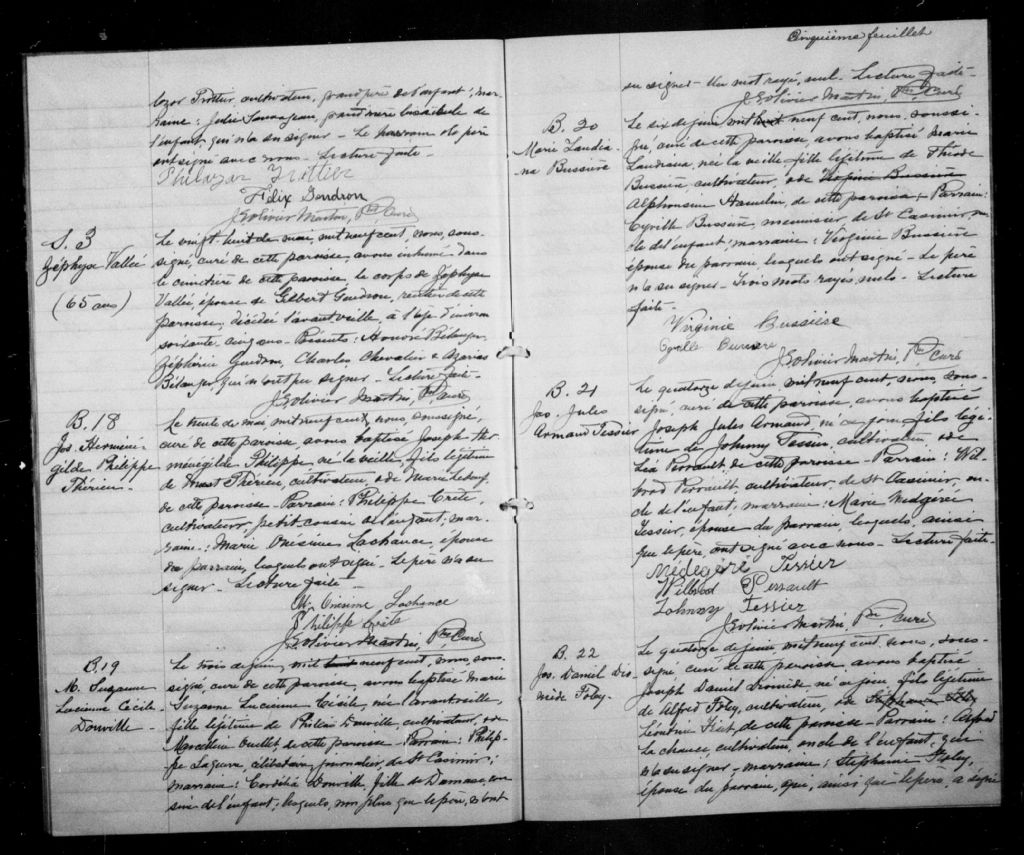 lazar Trottier, cultivateur, grand père de l'enfant; mar-
raine: Julie grand'mère de
l'enfant, qui n'a su signer - Le parrain et le père
ont signé avec nous - Lecture faite -
Philazar Trottier
Félix Gendron
J. Olivier Martin, Ptre Curé
S. 3
Zéphyse Vallée
(65 ans)
Le vingt huit de mai, mil neuf cent, nous, sous-
signé, curé de cette paroisse, avons inhumé dans
le cimetière de cette paroisse, le corps de Zéphyse
Vallée, épouse de Gilbert Gendron, rentier de cette
paroisse, décédée l'avantveille, à l'âge d'environ
soixante cinq ans - Présents: Honoré Bélanger,
Zéphirin Gendron, Charles Chevalier & Azarias
Bélanger, qui n'ont pu signer - Lecture faite -
J. Olivier Martin, Ptre Curé
B. 18
Jos. Herméné-
gilde Philippe
Thérien -
Le trente de mai, mil neuf cent, nous, soussigné,
curé de cette paroisse, avons baptisé Joseph Her-
ménégilde Philippe, né la veille, fils légitime
de Thérien, cultivateur, & de Marie Leboeuf,
de cette paroisse - Parrain: Philippe Crête,
cultivateur, petit-cousin de l'enfant; mar-
raine: Marie Onésime Lachance, épouse
du parrain, lesquels ont signé - Le père n'a su
signer - Lecture faite -
M. Onesime Lachance
Philippe Crête
J. Olivier Martin, Ptre Curé
B. 19
M. Suzanne
Lucienne Cécile
Douville -
Le trois de juin, mil neuf cent, nous, sous-
signé, curé de cette paroisse, avons baptisé Marie
Suzanne Lucienne Cécile, née l'avantveille,
fille légitime de Philéas Douville, cultivateur, & de
Marcelline Ouellet, de cette paroisse - Parrain: Philip-
pe célibataire, journalier, de St Casimir;
marraine: Cordélia Douville, fille de Damase, cou-
sine de l'enfant; lesquels, non plus que le père, n'ont
Cinquième feuillet
su signer - Un mot rayé, nul - Lecture faite -
J. Olivier Martin, Ptre Curé
B. 20
Marie Laudia-
na Bussière
Le six de juin mil neuf cent, nous, soussi-
gné, curé de cette paroisse, avons baptisé Marie
Laudiana, née la veille, fille légitime de Théode
Bussière, cultivateur, & de Virginie Bussière
Alphonsine Hamelin, de cette paroisse - Parrain:
Cyrille Bussière, menuisier, de St Casimir, on-
cle de l'enfant; marraine: Virginie Bussière
épouse du parrain, lesquels ont signé - Le père
n'a su signer - Trois mots rayés, nuls - Lecture
faite -
Virginie Bussière
Cyrille Bussière
J. Olivier Martin, Ptre Curé
B. 21
Jos. Jules
Armand Tessier
Le quatorze de juin, mil neuf cent, nous, sous-
signé, curé de cette paroisse, avons baptisé
Joseph Jules Armand, né ce jour, fils légi-
time de Johnny Tessier, cultivateur, & de
Léa Perrault, de cette paroisse - Parrain: Wil-
brod Perrault, cultivateur, de St Casimir, on-
cle de l'enfant, marraine: Marie
Tessier, épouse du parrain, lesquels, ainsi
que le père, ont signé avec nous - Lecture faite -
Médegéré Tessier
Wilbrod Perrault
Johnny Tessier
J. Olivier Martin, Ptre Curé
B. 22
Jos. Daniel Dio-
mède Foley -
Le quatorze de juin, mil neuf cent, nous, sous-
signé, curé de cette paroisse, avons baptisé
Joseph Daniel Diomède, né ce jour, fils légitime
de Alfred Foley, cultivateur, & de
Léontine de cette paroisse - Parrain: Alfred
Lachance, cultivateur, oncle de l'enfant, qui
n'a su signer; marraine: Stéphanie Foley,
épouse du parrain, qui, ainsi que le père, a signé